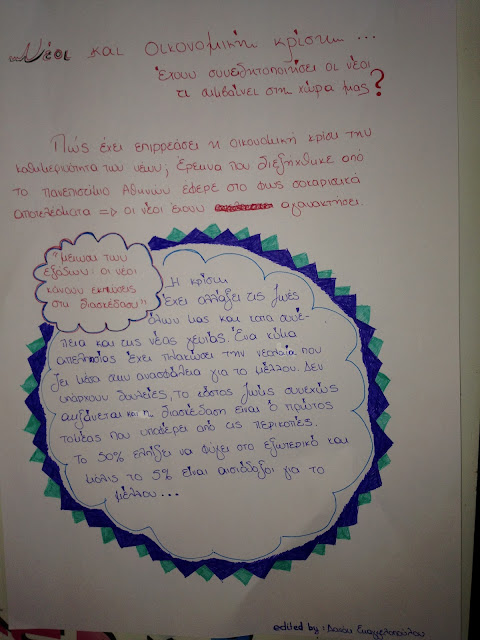 Νέοι και οικονομική κρίση...
έχουν συνειδητοποιήσει οι νέοι
τι συμβαίνει στη χώρα μας?
Πώς έχει επιρρεάσει η οικονομική κρίση την
καθημερινότητα των νέων; Έρευνα που διεξήχθηκε από
το πανεπιστίμιο Αθηνών έφερε στο φως σοκαριστικά
αποτελέσματα => οι νέοι έχουν αγανακτήσει.
"μείωση των
εξόδων: οι νέοι
κάνουν εκπτώσεις
στη διασκέδαση"
Η κρίση
έχει αλλάξει τις ζωές
όλων μας και κατά συνέ-
πεια και της νέας γενιάς. Ένα κύμα
απελπισίας έχει πλακώσει την νεολαία που
ζει μέσα στην ανασφάλεια για το μέλλον. Δεν
υπάρχουν δουλείες, το κόστος ζωής συνεχώς
αυξάνεται και η διασκέδαση είναι ο πρώτος
τομέας που υποφέρει από τις περικοπές.
Το 50% ελπίζει να φύγει στο εξωτερικό και
μόλις το 5% είναι αισιόδοξοι για το
μέλλον...
edited by: Δανάη Ευαγγελοπούλου